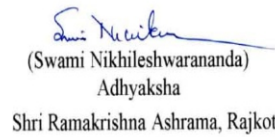 (Swami Nikhileshwarananda)
Adhyaksha
Shri Ramakrishna Ashrama, Rajkot